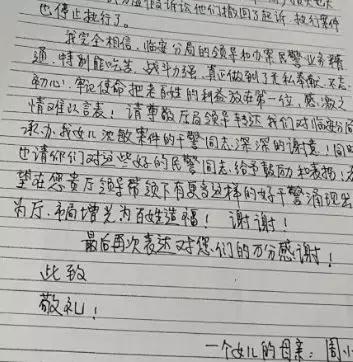 诉该他们撤回了起诉,执行案件
也停止执行了。
我完全相信,临安分局的领导和办案民警业务精
通,特别能吃苦,战斗力强,真正做到了无私奉献,不忘
初心,牢记使命把老百姓的利益放在第一位,感激之
情难以言表!请尊敬厅各领导转达我们对临安分局
承办我女儿案件的干警同志,深深的谢意!同时
也请你们对这些好的民警同志,给予鼓励和表扬!希
望在您贵厅领导带领下有更多这样的好干警涌现出
为厅、市局增光为百姓造福!谢谢!
最后再次表达对您们的万分感谢!
此致
敬礼!
一个女儿的母亲:周小